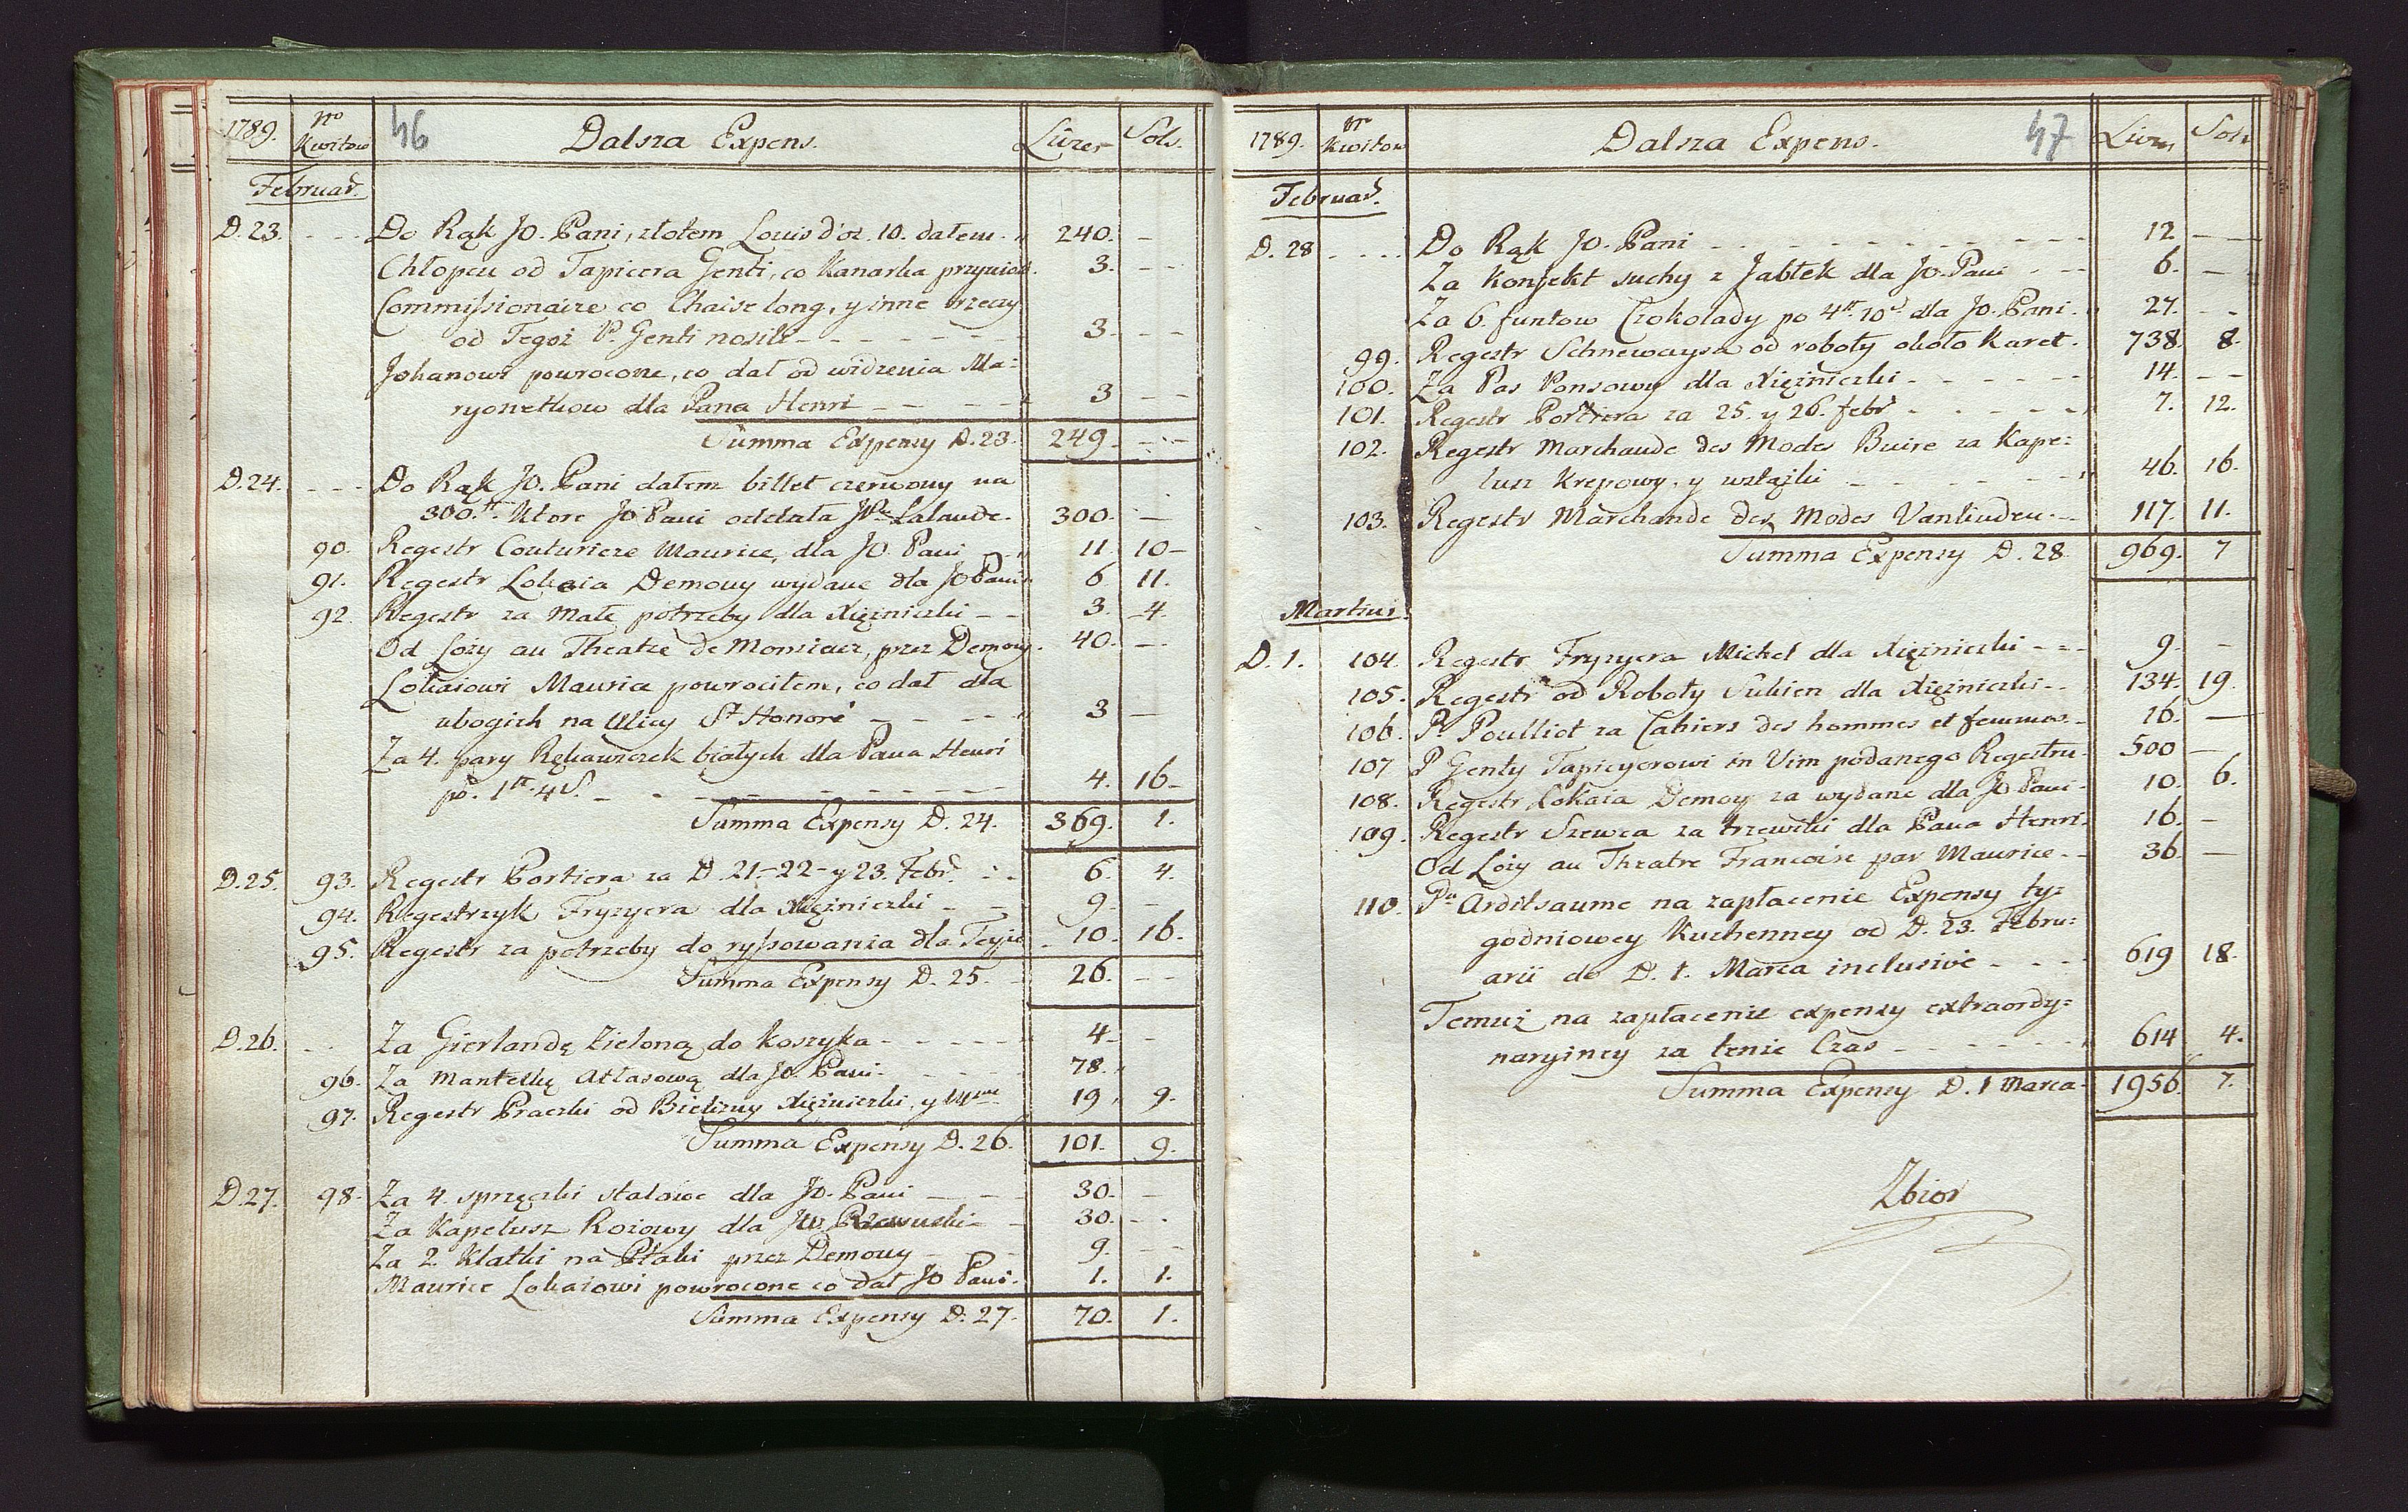 1789. Nro Kwitow 46 Dalsza Expens. Livres Sols.
Februar.
D. 23. - - - Do Rąk JO. Pani, złotem Louis d'or. 10. dałem. 240. -
Chłopcu od Tapicera Genti, co Kanarka przyniosł. 3. - -
Commissionaire co Chaise long, y inne rzeczy
od Tegoż P. Genti nosili - - - - - - 3 - - -
Johanowi powrocone, co dał od widzenia Ma=
ryonetkow dla Pana Henri - - - - 3 - -
Summa Expensy D. 23. 249. - - -
D. 24. - - - Do Rąk JO. Pani dałem billet czerwony na
300.tt Ktore JO Pani oddała JPe Lalande. 300. -
90. Regestr Couturiere Maurice, dla JO. Pani - 11. 10 -
91. Regestr Lokaia Demouy wydane dla JO Pani 6. 11.
92. Regestr za Małe potrzeby dla Xiężniczki - - 3. 4.
Od Loży au Theatre de Monsieur, przez Demouy. 40. -
Lokaiowi Maurice powrocilem, co dał dla
ubogich na Ulicy St Honoré - - - - 3 -
Za 4. pary Rękawiczek białych dla Pana Henri
po. 1tt 4 S. - - - - - - - 4. 16 -
Summa Expensy D. 24. 369. 1.
D. 25. 93. Regestr Portiera za D. 21 - 22 - y 23. Febr. - - 6. 4.
94. Regestrzyk Fryzyera dla Xiężniczki - - 9. -
95. Regestr za potrzeby do rysowania dla Teyże - 10. 16.
Summa Expensy D. 25. - 26. - -
D. 26. - - Za Gierlandę Zieloną do koszyka - - - - - 4 - -
96. Za Mantelkę Atłasową dla JO. Pani - - - - 78.
97. Regestr Praczki od Bielizny Xiężniczki, y 19. 9.
Summa Expensy D. 26. 101. 9.
D. 27. 98. Za 4. sprzęczki stalowe dla JO. Pani - - - 30. -
Za Kapelusz Rożowy dla JW. Rzewuski - - 30. - -
Za 2. Klatki na Ptaki przez Demouy - - 9. - -
Maurice Lokaiowi powrocone co dał JO Pani. 1. 1.
Summa Expensy D. 27. 70. 1.
1789. Nro Kwitow Dalsza Expens. 47 Livres Sols
Februar.
D. 28 - - - - Do Rąk JO. Pani - - - - - - - - 12 - -
Za Konfekt suchy z Jabłek dla JO. Pani - - - 6. -
Za 6. funtow Czokolady po 4tt. 10s dla JO. Pani. 27. - -
99. Regestr Schneways od roboty około Karet. 738. 8.
100. Za Pas Ponsowy dla Xiężniczki - - - - - 14. - -
101. Regestr Portiera za 25. y 26. febr - - - - 7. 12.
102. Regestr Marchande des Modes Buire za Kape=
lusz Krepowy, y wstążki - - - - - - 46. 16.
103. Regestr Marchande des Modes Vanlinden. - - 117. 11.
Summa Expensy D. 28 969. 7
Martius.
D. 1. 104. Regestr Fryzyera Michel dla Xiężniczki - - - 9. -
105. Regestr od Roboty Sukien dla Xiężniczki - - 134. 19.
106. Pr Poulliot za Cahiers des hommes et femmes - 16. -
107 P Genty Tapicyerowi in Vim podanego Regestru - 500 -
108. Regestr Lokaia Demoy za wydane dla JO Pani - 10. 6.
109. Regestr Szewca za trzewiki dla Pana Henri. 16. -
Od Loży au Theatre Francoise par Maurice - - 36. -
110. Pu Arditsaume na zapłacenie Expensy ty=
godniowey Kuchenney od D. 23. Febru=
arii do D. 1. Marca inclusive - - - - 619 18.
Temuż na zapłacenie expensy extraordy=
naryiney za tenże Czas - - - - - - 614 4.
Summa Expensy D. 1 Marca - 1956. 7.
Zbior